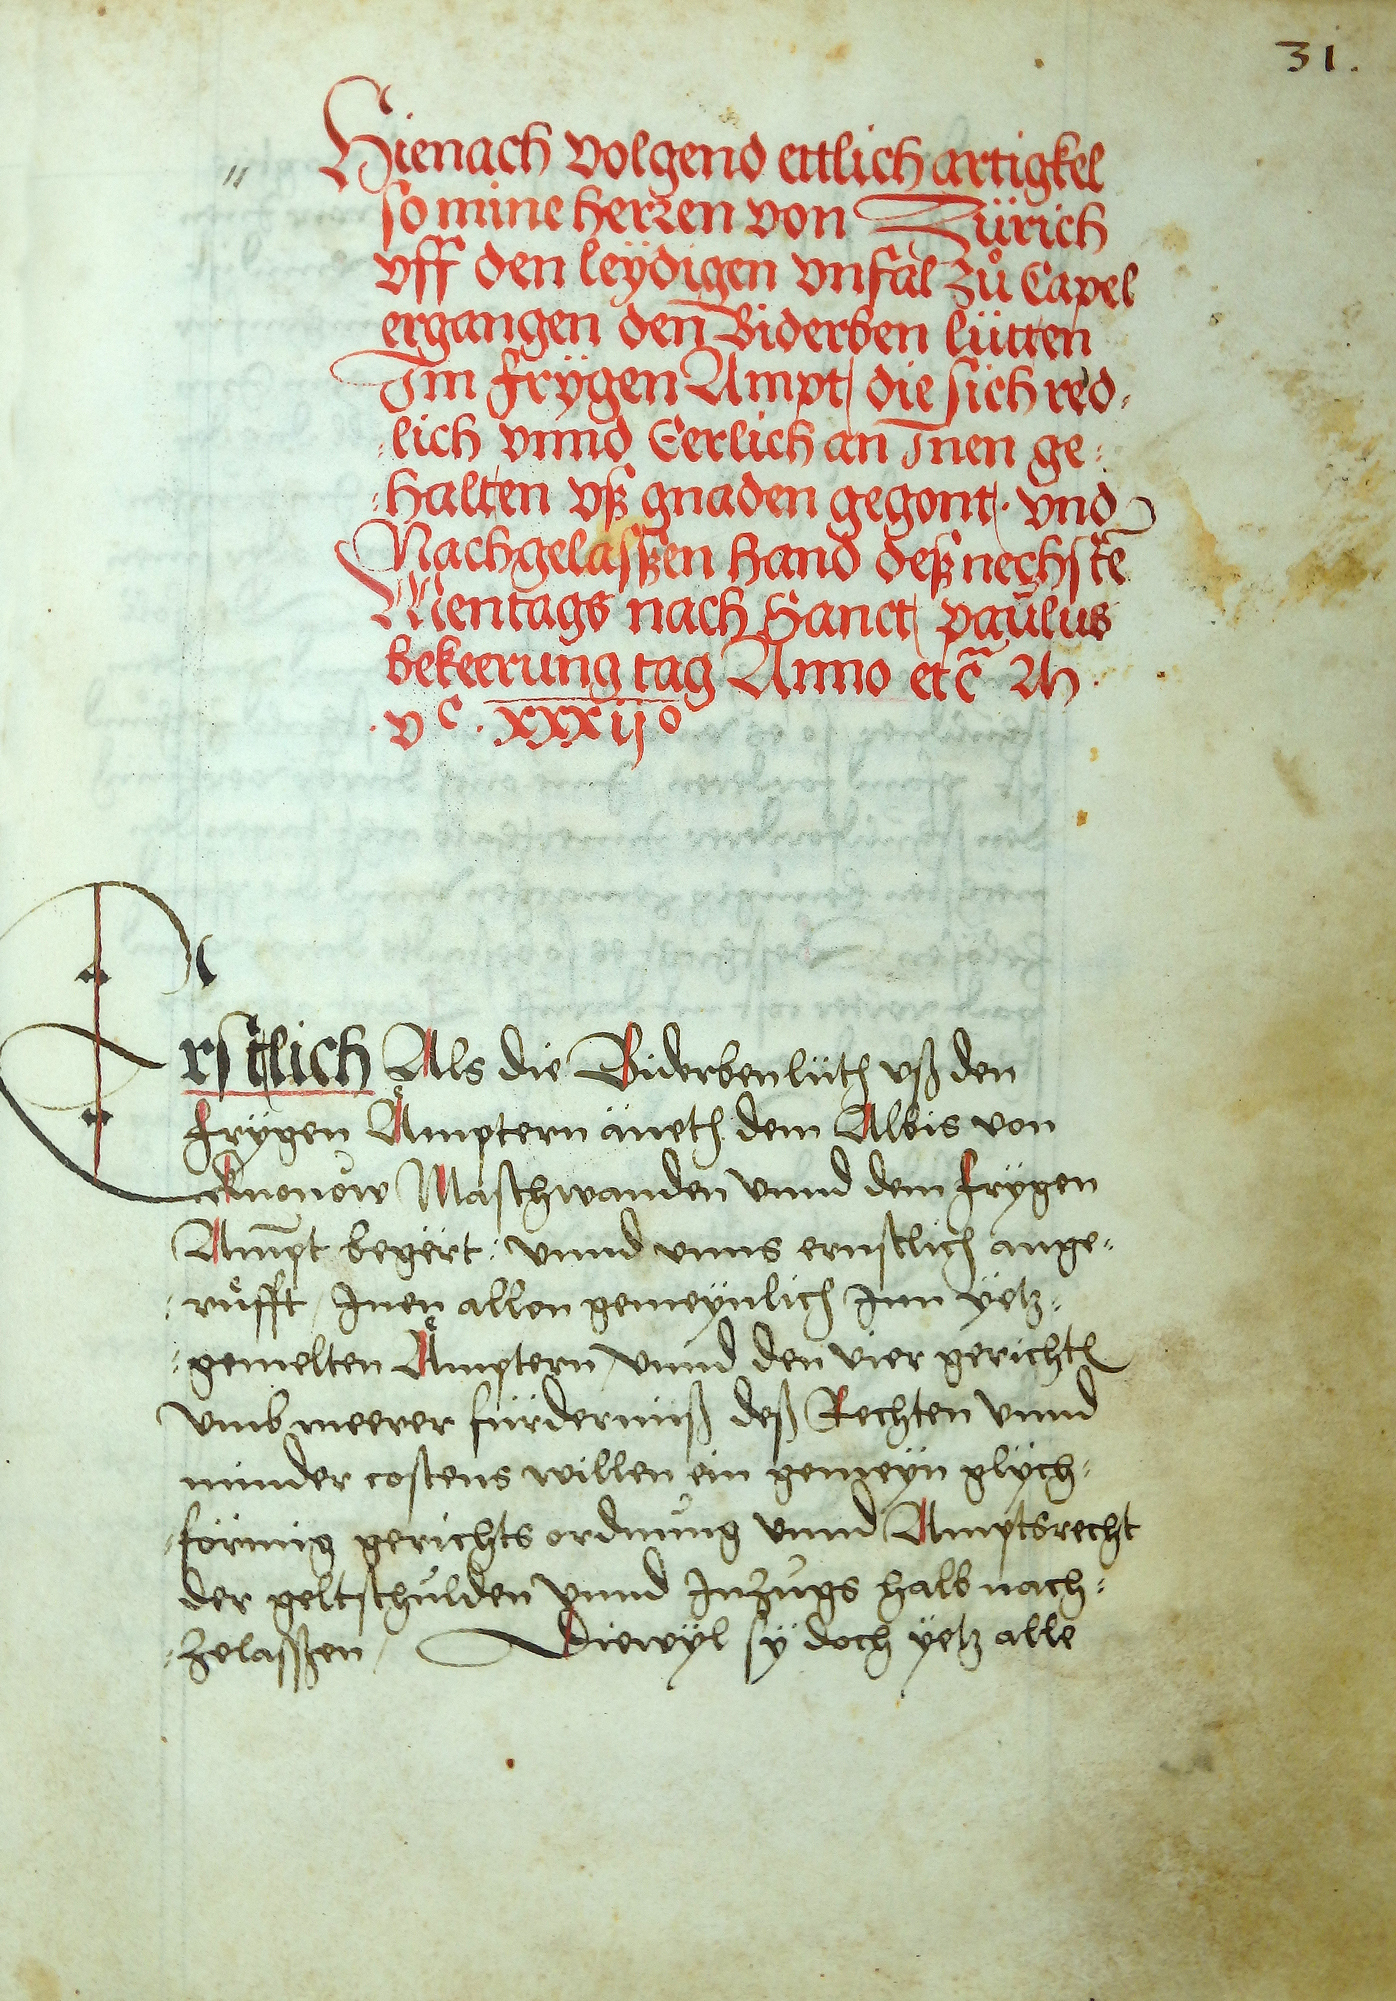 31.
Hienach volgend ettlich artigkel
so mine herren von Zürich
vff den leÿdigen vnfal zů Capel
ergangen den Biderben lütten
Im frÿgen Ampt, die sich red-
-lich vnnd Eerlich an Inen ge-
-halten vß gnaden gegont. vnd
Nachgelaßßen hand deß nechstē
Mentags nach Sanct paūlus
bekeerung tag Anno etc̄ M
.vᶜ. xxxijᵒ
Erstlich Als die Biderben lüth vß den
frÿgen Åmptern äneth dem Albis von
Knonow Maschwanden vnnd dem frÿgen
Ampt begërt: vnnd vnns ernstlich ange-
-růfft, Inen allen gemeÿnlich Inn ÿetz-
-gemelten Aͤmptern, vnnd den vier gerichtē
vmb meerer fürdernüß deß Rechten vnnd
minder costens willen ein gemeÿn glÿch-
-förmig gerichts ordnŭng vnnd Amptsrecht
der geltschŭlden vnnd Inzŭgs halb nach-
-zelaßßen, Diewÿl sÿ doch ÿetz alle